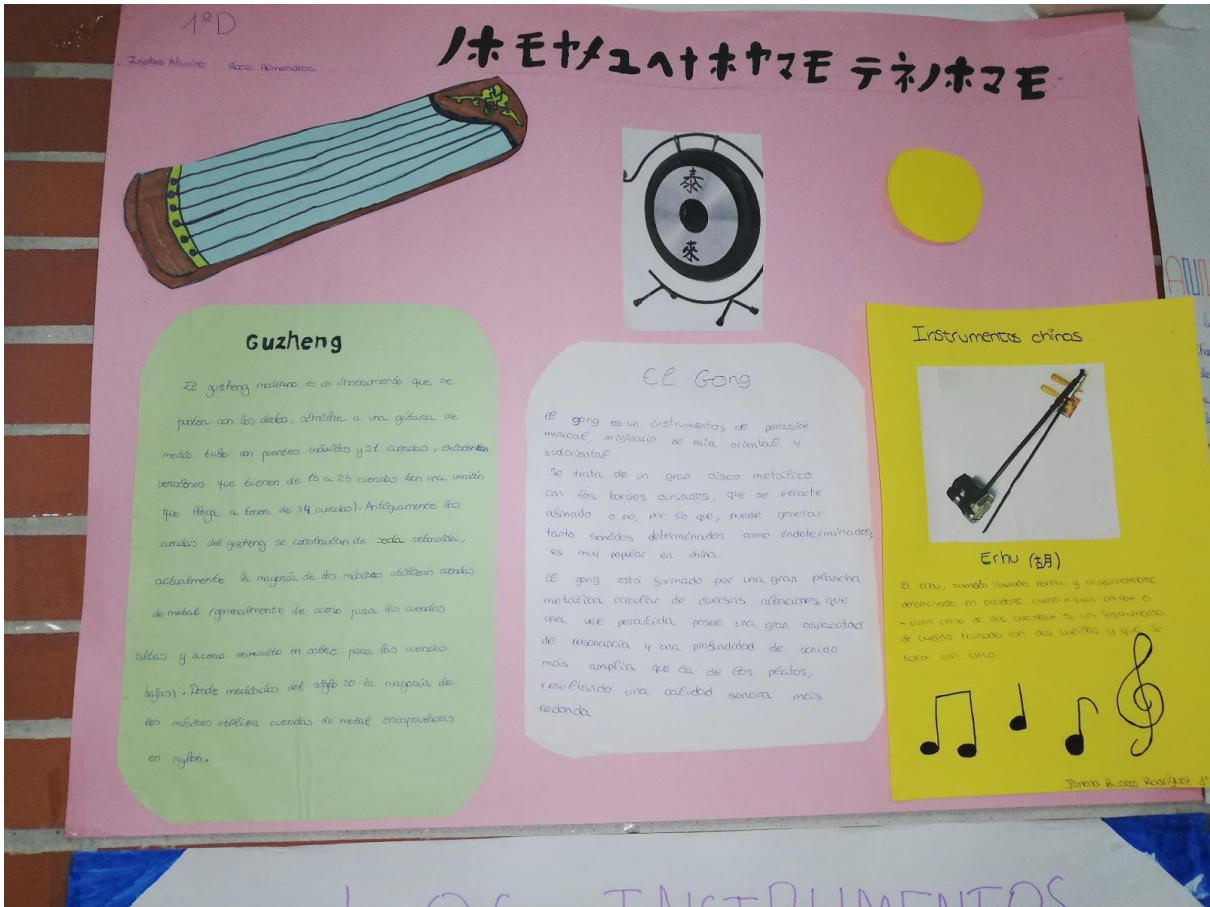 1ºD
Rocío Almendros
ノホモヤメユヘナホヤマモ テネノホマモ
泰
來
Guzheng
El guzheng moderno es un instrumento que se
puntea con los dedos, similar a una gítara de
medio tubo con puentes móviles y 21 cuerdas,
versiones que tienen de 15 a 25 cuerdas (en una versión
que llega a tener de 34 cuerdas). Antiguamente las
cuerdas del guzheng se construían de seda retorcida,
actualmente la mayoría de los músicos utilizan cuerdas
de metal (generalmente de acero para las cuerdas
altas y acero envuelto en cobre para las cuerdas
bajas). Desde mediados del siglo 20 la mayoría de
los músicos utiliza cuerdas de metal encapsuladas
en nylon.
El Gong
El gong es un instrumentos de percusión
musical, originario de asia oriental y
sudoriental.
Se trata de un gran disco metálico
con los bordes curvados, que se
afinado o no, por lo que, puede generar
tanto sonidos determinados como endeterminados,
es muy popular en
El gong está formado por una gran plancha
metálica circular de diversas aleaciones, que
una vez percutida posee una gran capacidad
de resonancia y una profundidad de sonido
más amplia que la de los platos,
resultando una calidad sonora más
redonda
Instrumentos chinos
Erhu (胡)
El erhu, también llamado nanhu, y ocasionalmente
denominado en occidente como «violín chino» o
«violín chino de dos cuerdas» es un instrumento
de cuerda frotado con dos cuerdas y que se
toca con arco.
Jimena Rodríguez 1º
LOS INSTRUMENTOS